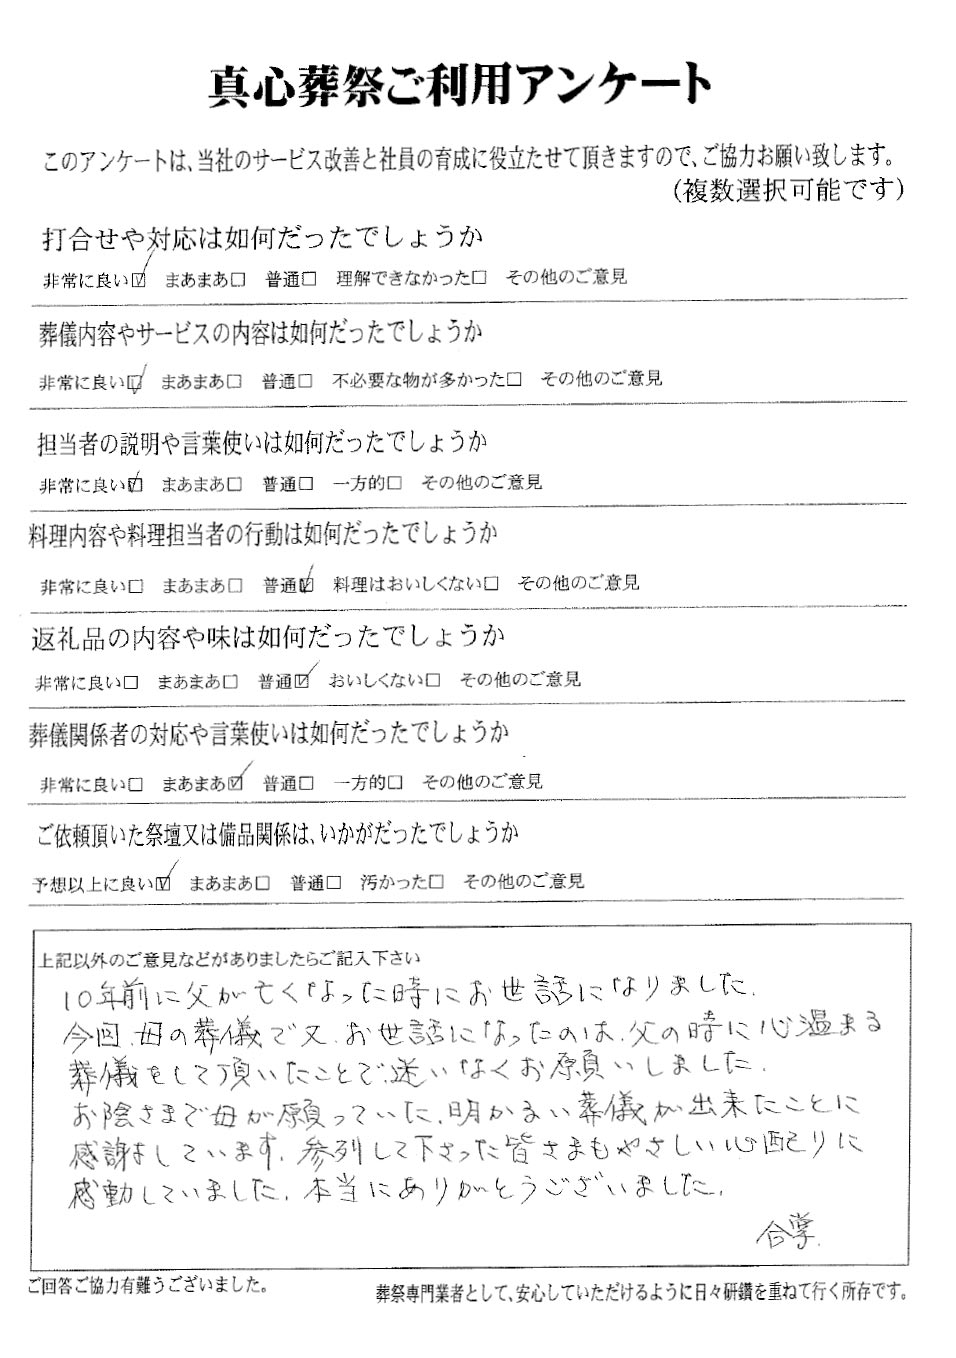 真心葬祭ご利用アンケート
このアンケートは、当社のサービス改善と社員の育成に役立たせて頂きますので、ご協力お願い致します。
(複数選択可能です)
打合せや対応は如何だったでしょうか
非常に良い☑ まあまあ□ 普通□ 理解できなかった□ その他のご意見
葬儀内容やサービスの内容は如何だったでしょうか
非常に良い☑ まあまあ□ 普通□ 不必要な物が多かった□ その他のご意見
担当者の説明や言葉使いは如何だったでしょうか
非常に良い☑ まあまあ□ 普通□ 一方的□ その他のご意見
料理内容や料理担当者の行動は如何だったでしょうか
非常に良い□ まあまあ□ 普通☑ 料理はおいしくない□ その他のご意見
返礼品の内容や味は如何だったでしょうか
非常に良い□ まあまあ□ 普通☑ おいしくない□ その他のご意見
葬儀関係者の対応や言葉使いは如何だったでしょうか
非常に良い□ まあまあ☑ 普通□ 一方的□ その他のご意見
ご依頼頂いた祭壇又は備品関係は、いかがだったでしょうか
予想以上に良い☑ まあまあ□ 普通□ 汚かった□ その他のご意見
上記以外のご意見などがありましたらご記入下さい
10年前に父が亡くなった時にお世話になりました.
今回、母の葬儀で又、お世話になったのは、父の時に心温まる
葬儀をして頂いたことで、迷いなくお願いしました.
お陰さまで母が願っていた、明かるい葬儀が出来たことに
感謝をしています. 参列して下さった皆さまもやさしい心配りに
感動していました. 本当にありがとうございました.
合掌.
ご回答ご協力有難うございました。
葬祭専門業者として、安心していただけるように日々研鑽を重ねて行く所存です。